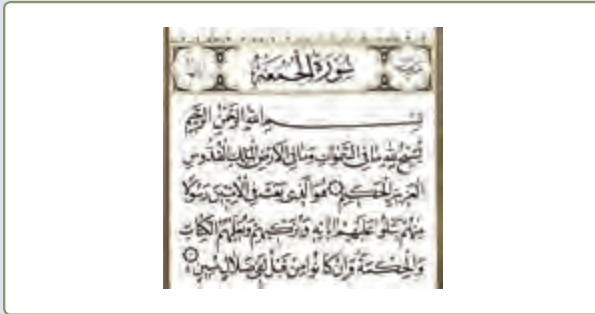 سُورَةُ الْجُمُعَةِ
بِسْمِ اللَّهِ الرَّحْمَٰنِ الرَّحِيمِ
يُسَبِّحُ لِلَّهِ مَا فِي السَّمَٰوَاتِ وَمَا فِي الْأَرْضِ الْمَلِكِ الْقُدُّوسِ
الْعَزِيزِ الْحَكِيمِ هُوَ الَّذِي بَعَثَ فِي الْأُمِّيِّينَ رَسُولًا
مِنْهُمْ يَتْلُوا عَلَيْهِمْ اٰيَاتِهِ وَيُزَكِّيهِمْ وَيُعَلِّمُهُمُ الْكِتَابَ
وَالْحِكْمَةَ وَاِنْ كَانُوا مِنْ قَبْلُ لَفِي ضَلَالٍ مُبِينٍ